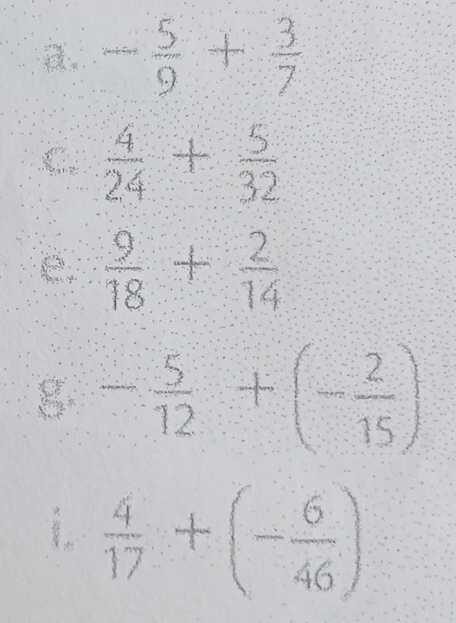 a. −5/9 + 3/7
c. 4/24 + 5/32
e. 9/18 + 2/14
g. −5/12 + (−2/15)
i. 4/17 + (−6/46)